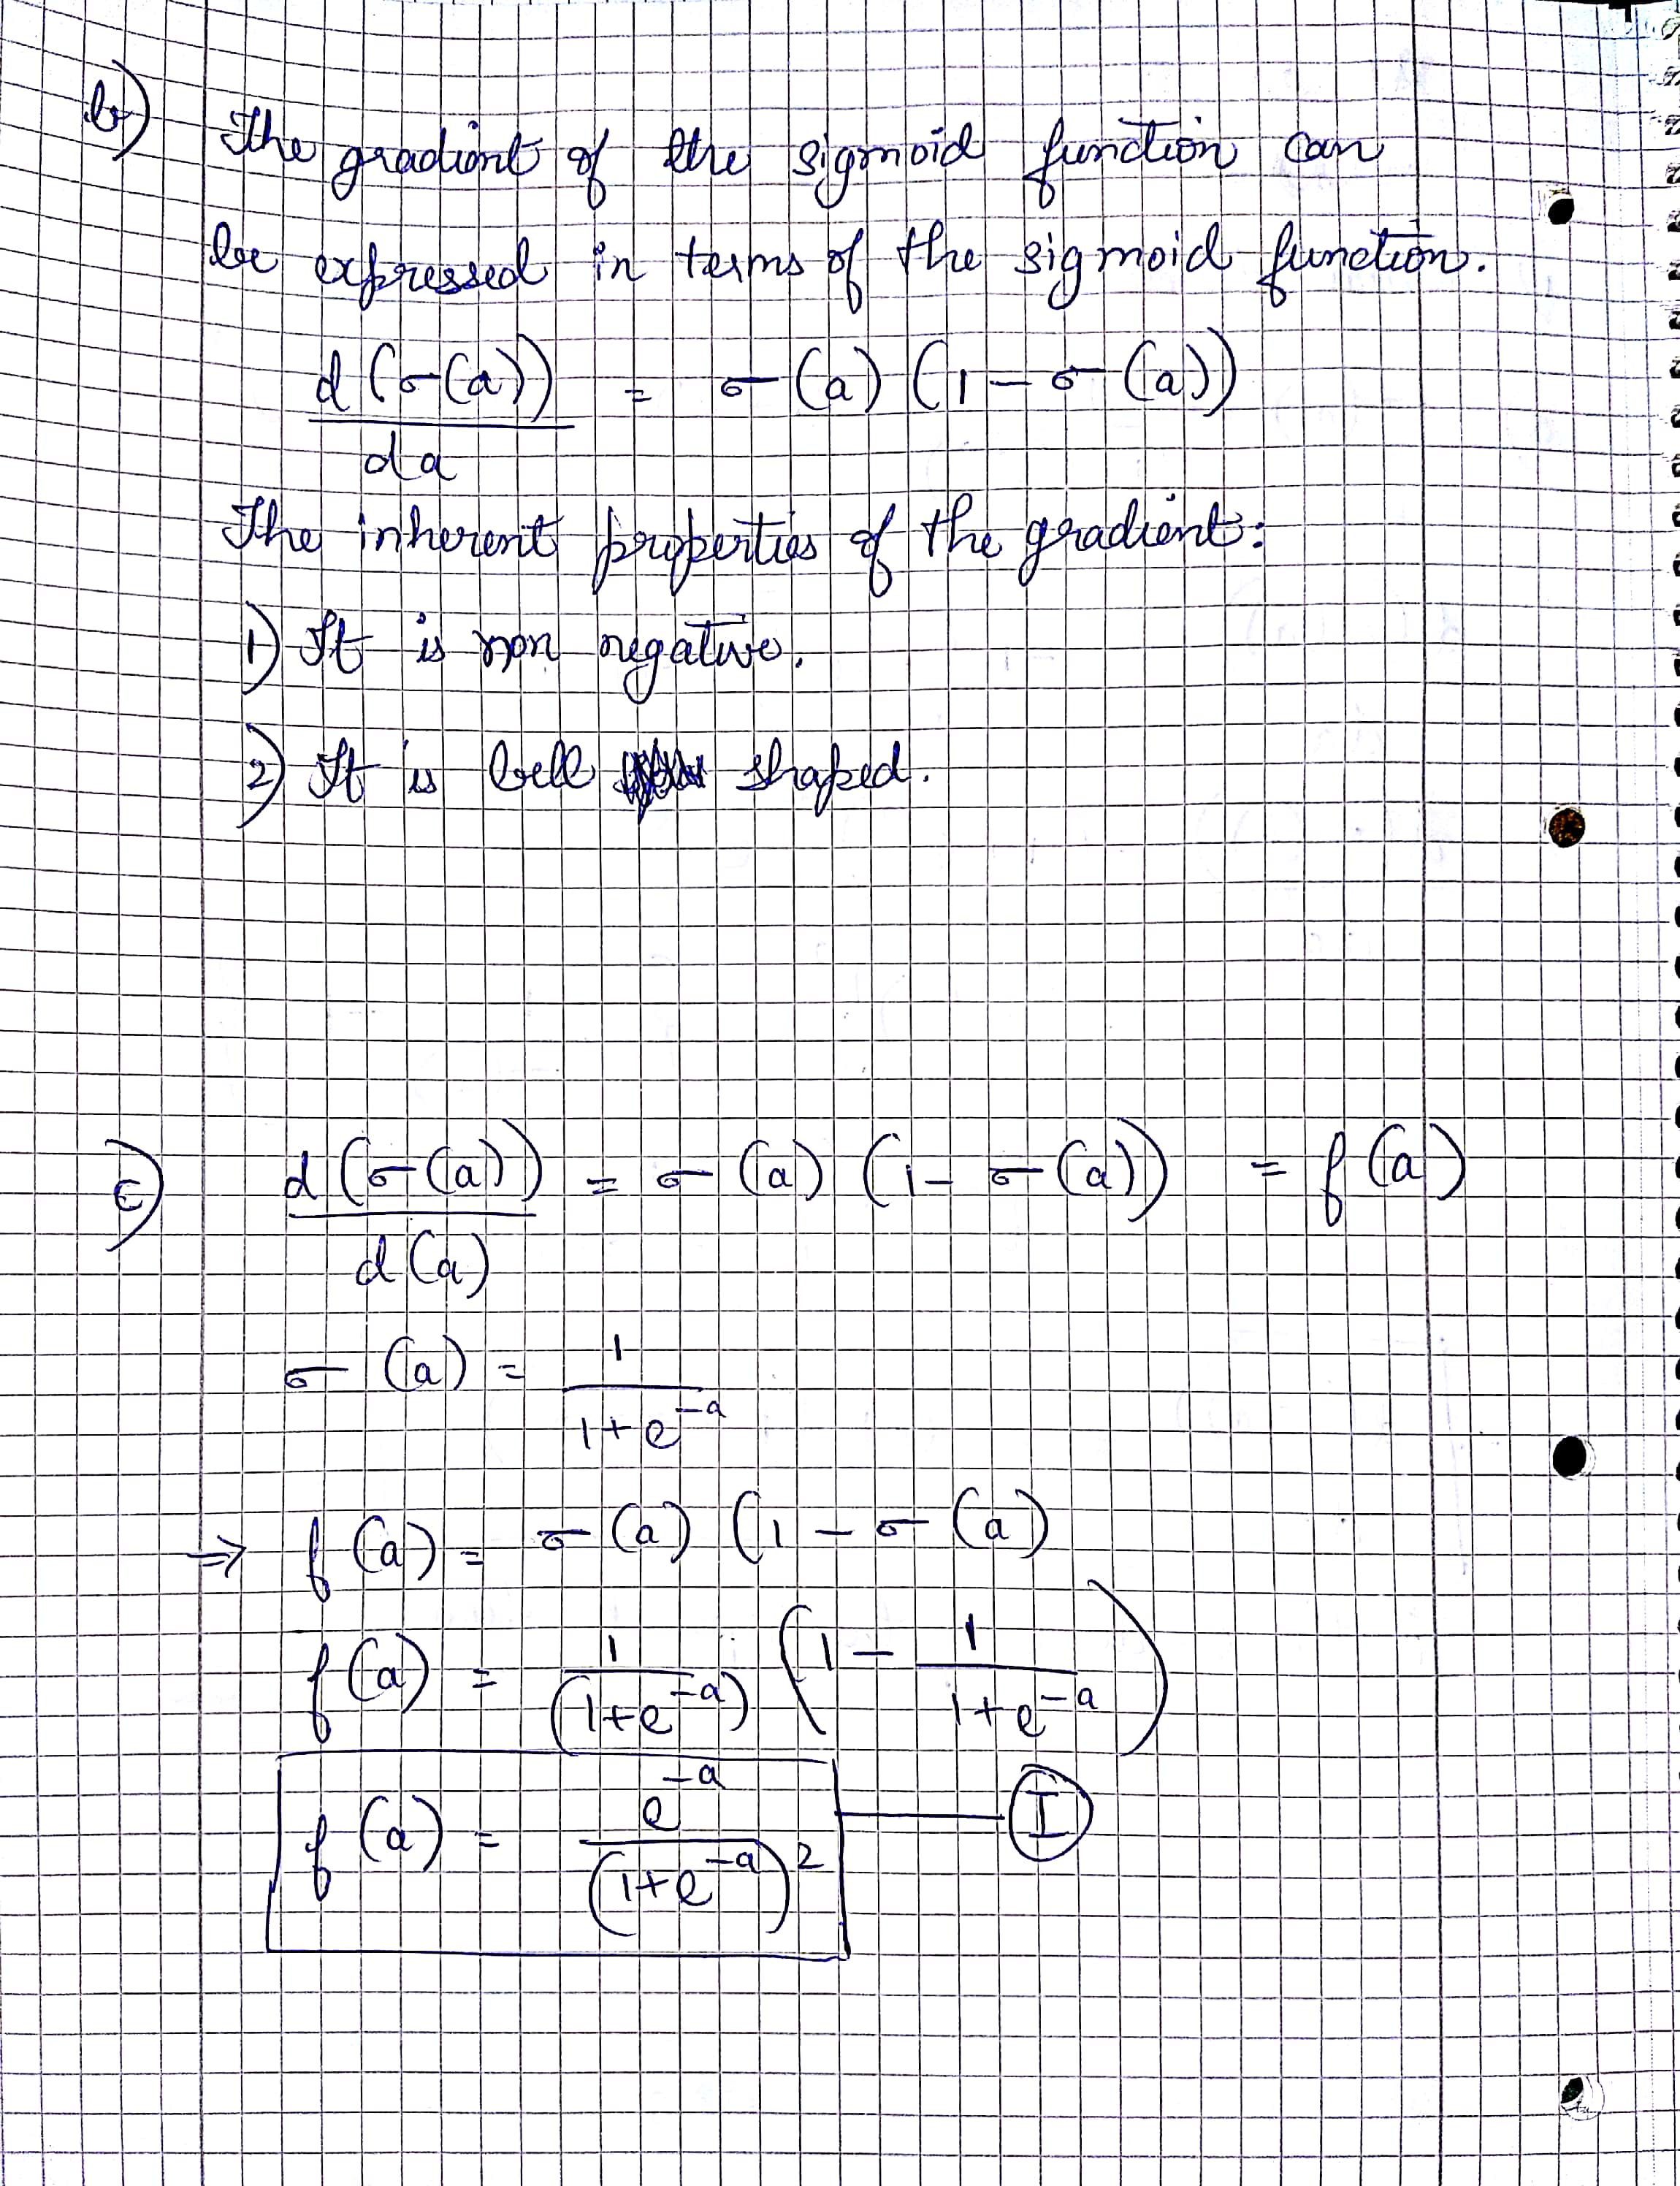 b) The gradient of the sigmoid function can
be expressed in terms of the sigmoid function.
d(σ(a))/da = σ(a)(1 − σ(a))
The inherent properties of the gradient:
1) It is non negative.
2) It is bell shaped.
c) d(σ(a))/d(a) = σ(a)(1 − σ(a)) = f(a)
σ(a) = 1/(1+e^{-a})
⇒ f(a) = σ(a)(1 − σ(a)
f(a) = 1/(1+e^{-a}) (1 − 1/(1+e^{-a}))
f(a) = e^{-a}/(1+e^{-a})^2 — I